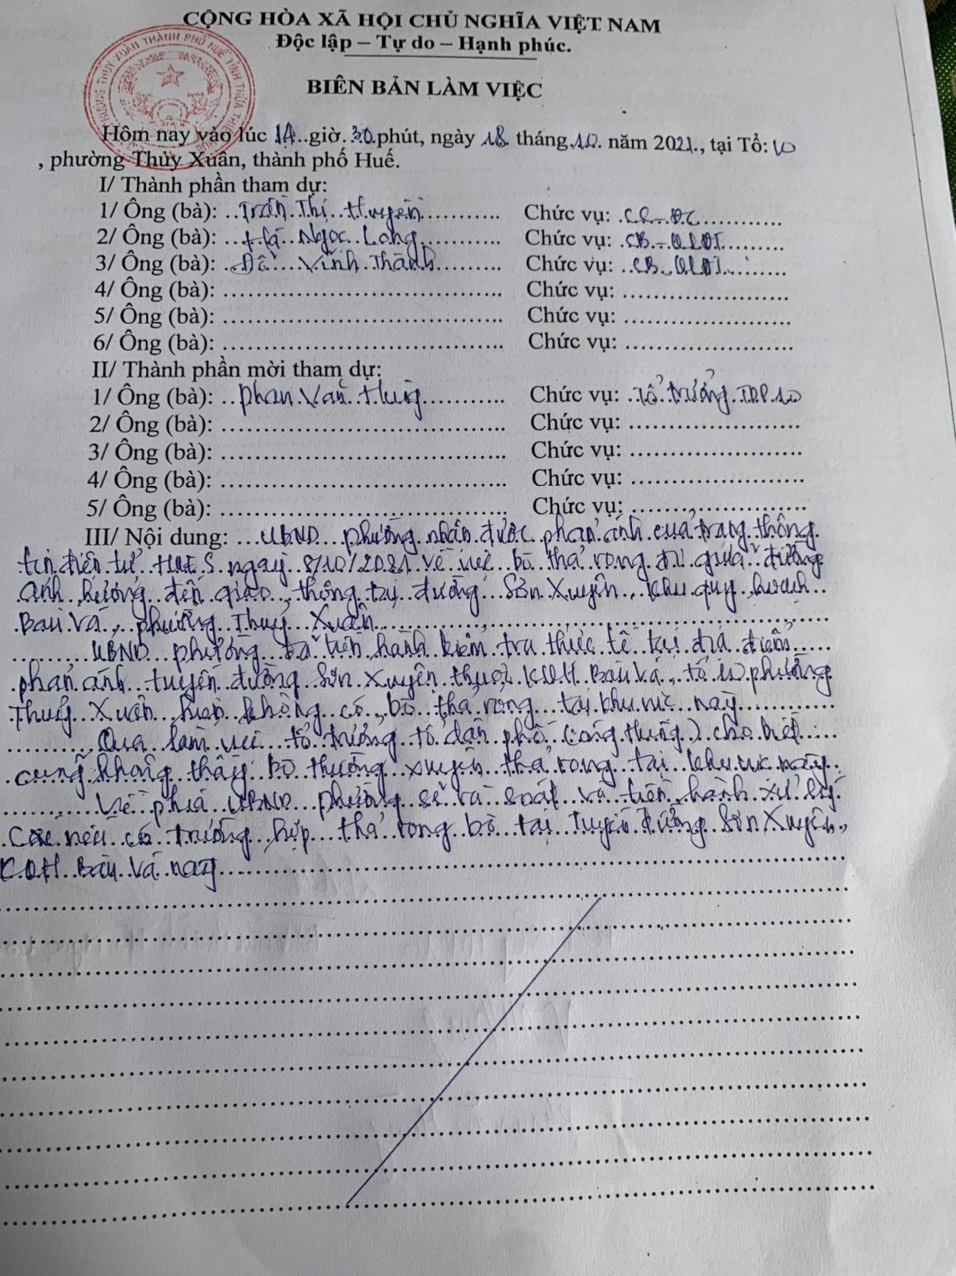 CỘNG HÒA XÃ HỘI CHỦ NGHĨA VIỆT NAM
Độc lập – Tự do – Hạnh phúc.
BIÊN BẢN LÀM VIỆC
Hôm nay vào lúc 14 giờ 30 phút, ngày 18 tháng 10 năm 2021, tại Tổ: 10
, phường Thủy Xuân, thành phố Huế.
I/ Thành phần tham dự:
1/ Ông (bà): Trần Thị Huyền Chức vụ: CC-ĐC
2/ Ông (bà): Ngọc Long Chức vụ: CB-QLĐT
3/ Ông (bà): Vĩnh Thành Chức vụ: CB-QLĐT
4/ Ông (bà): Chức vụ:
5/ Ông (bà): Chức vụ:
6/ Ông (bà): Chức vụ:
II/ Thành phần mời tham dự:
1/ Ông (bà): Phan Văn Hùng Chức vụ: Tổ trưởng TDP 10
2/ Ông (bà): Chức vụ:
3/ Ông (bà): Chức vụ:
4/ Ông (bà): Chức vụ:
5/ Ông (bà): Chức vụ:
III/ Nội dung: UBND phường nhận được phản ánh của trang thông
tin điện tử HUE S ngày 8/10/2021 về việc bò thả rong đi qua đường
ảnh hưởng đến giao thông tại đường Sơn Xuyên, khu quy hoạch
Bàu Vá, phường Thuỷ Xuân
UBND phường đã tiến hành kiểm tra thực tế tại địa điểm
phản ánh tuyến đường Sơn Xuyên thuộc KQH Bàu Vá, tổ 10 phường
Thuỷ Xuân, không có bò thả rong tại khu vực này
Qua làm việc tổ trưởng tổ dân phố (ông Hùng) cho biết
cũng không thấy bò thường xuyên thả rong tại khu vực này.
Về phía UBND phường sẽ rà soát và tiến hành xử lý
các nếu có trường hợp thả rong bò tại tuyến đường Sơn Xuyên,
KQH Bàu Vá này